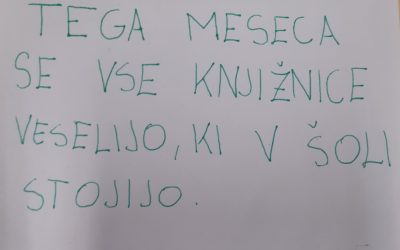 TEGA MESECA
SE VSE KNJIŽNICE
VESELIJO, KI V ŠOLI
STOJIJO.